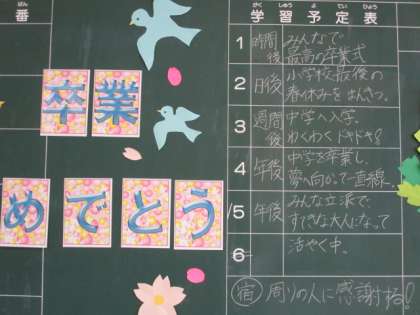 ばん
番
がく しゅう よ てい ひょう
学習予定表
卒業
めでとう
1 時間後 みんなで
最高の卒業式
2 日後 小学校最後の
春休みをまんきつ。
3 週間後 中学へ入学。
わくわくドキドキ!
4 年後 中学を卒業し、
夢へ向かって一直線。
5 年後 みんな立派で、
すてきな大人になって
6 活やく中。
宿 周りの人に感謝する!